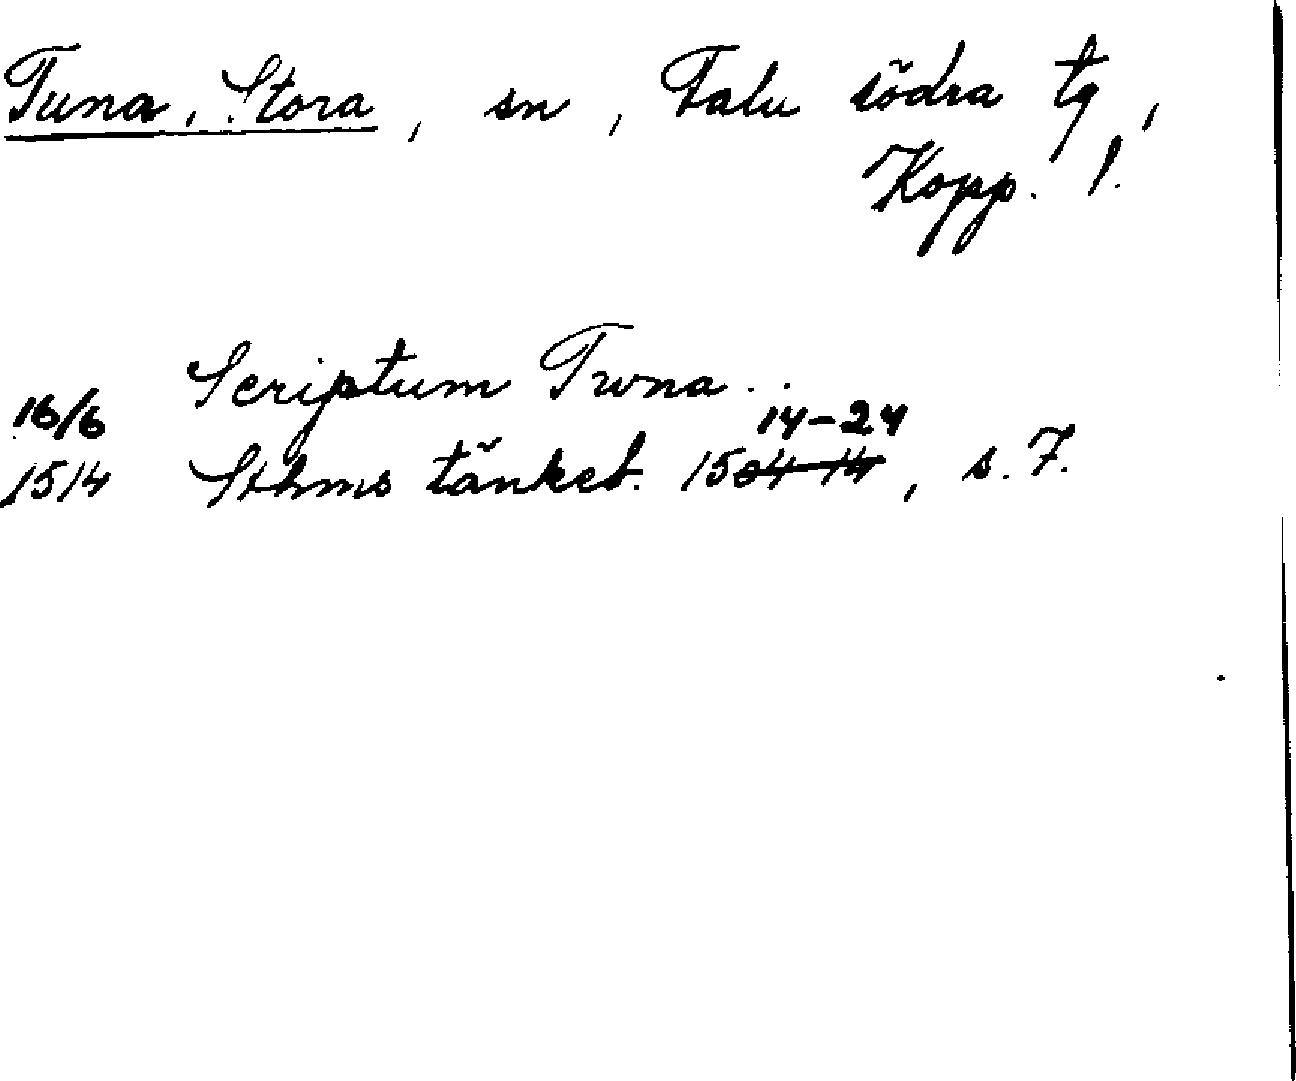 Tuna, Stora, sn, Falu södra tg,
Kopp. l.
Scriptum Twna..
16/6 14-24
1514 Sthms tänkeb. 1504-14, s. 7.